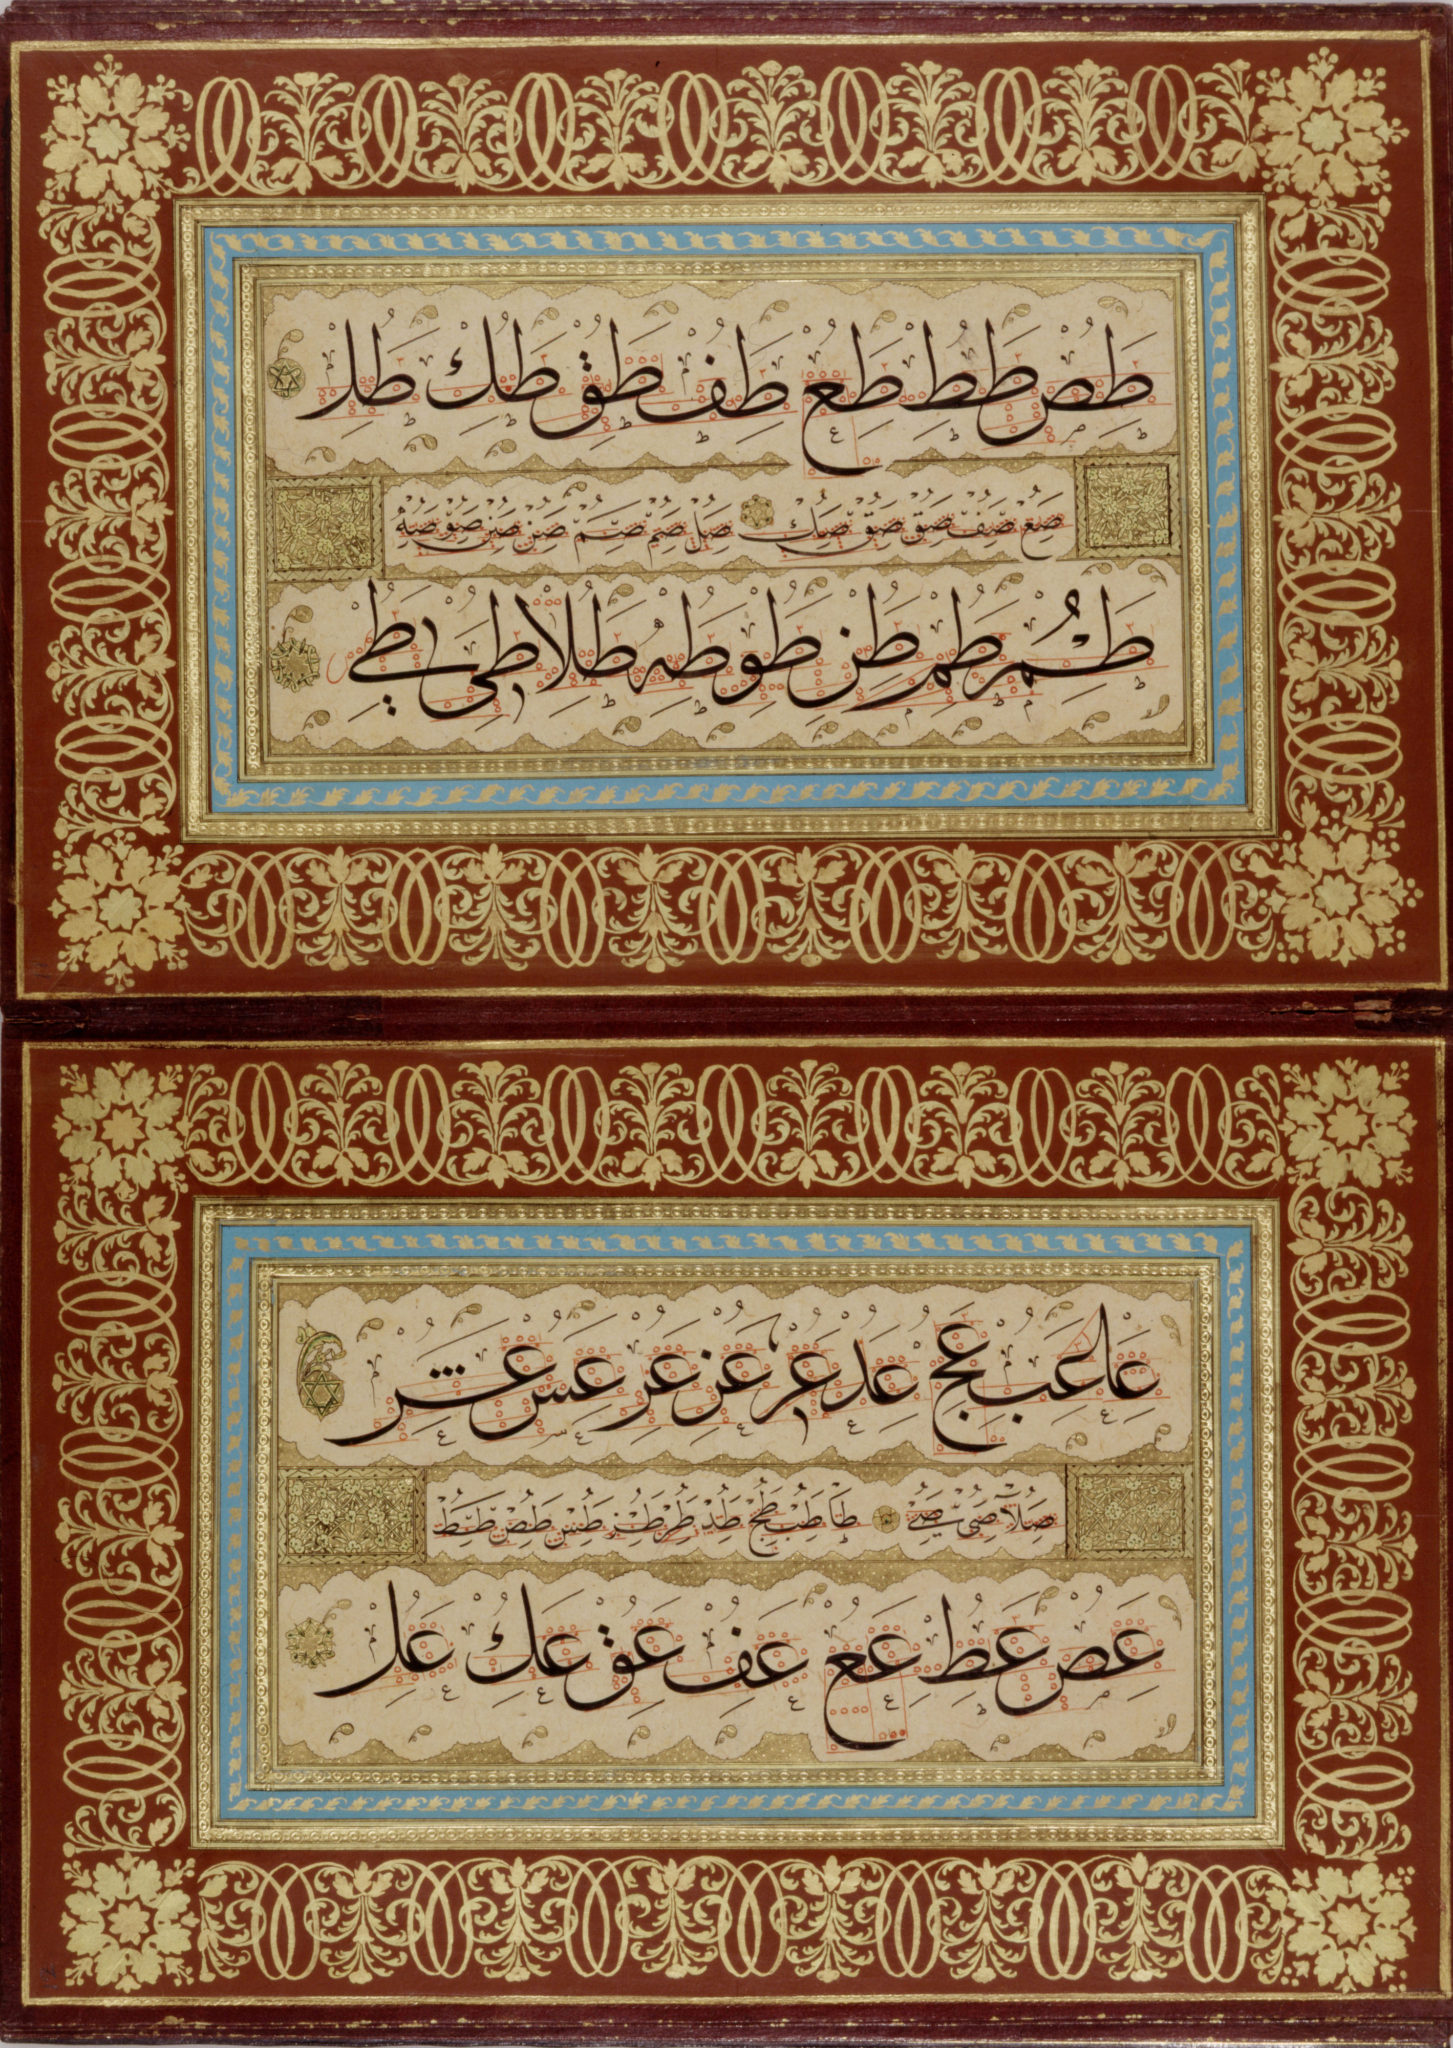 طص طط طع طف طق طك طل
صع صف صق صك صل صم صم صن صن صو صه
طم طم طن طو طه طلا طى طے
عا عب عج عد عر عس عش
صلا صى صے طا طب طج طد طر طس طص طط
عص عط عع عف عق عك عل